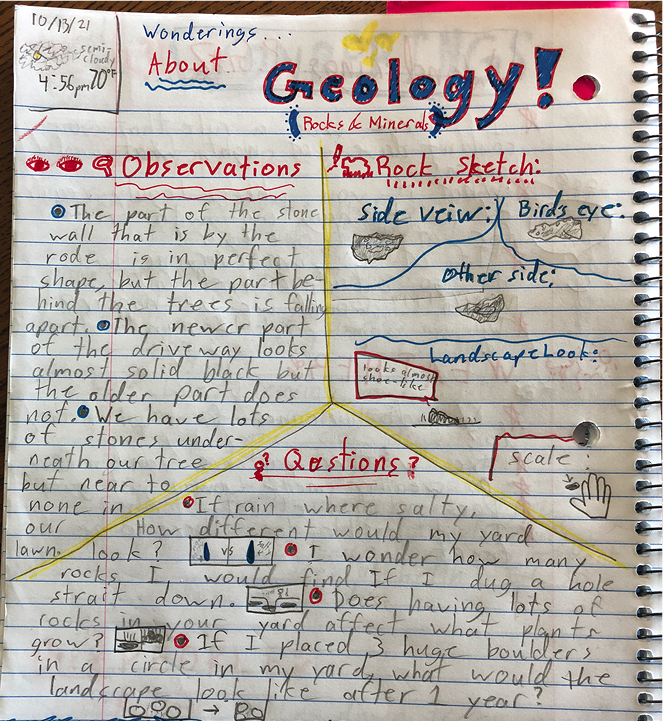 10/13/21
semi-
cloudy
4:56pm 70°F
Wonderings...
About
Geology!
(Rocks & Minerals)
Observations
The part of the stone
wall that is by the
rode is in perfect
shape, but the part be-
hind the trees is falling
apart. The newer part
of the driveway looks
almost solid black but
the older part does
not. We have lots
of stones under-
neath our tree
but near to
none in
our
lawn.
Rock Sketch:
Side veiw:
Bird's eye:
Other side:
Landscape Look:
looks almost
shoe-like
scale:
? Qestions?
If rain where salty,
How different would my yard
look? vs I wonder how many
rocks I would find If I dug a hole
strait down. Does having lots of
rocks in your yard affect what plants
grow? If I placed 3 huge boulders
in a circle in my yard, what would the
landscape look like after 1 year?